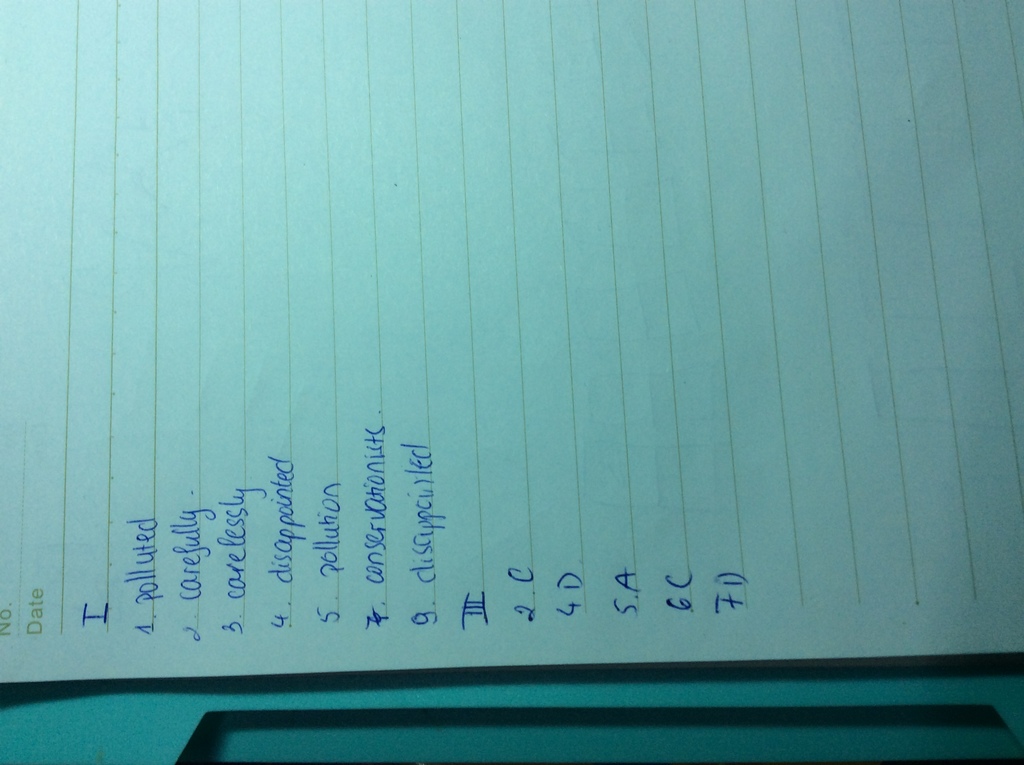 No.
Date
I
1. polluted
2. carefully.
3. carelessly
4. disappointed
5. pollution
7. conservationists.
9. disappointed
III
2 C
4 D
5 A
6 C
7 D